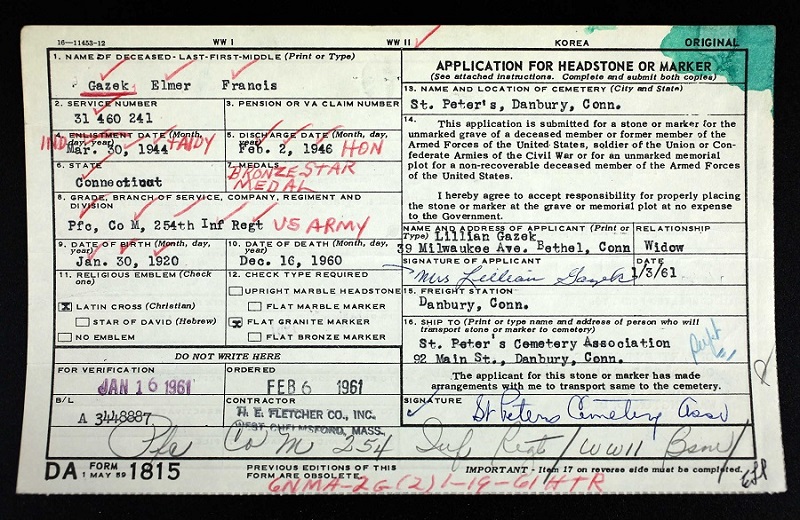 16—11453-12 WW I WW II KOREA ORIGINAL
1. NAME OF DECEASED - LAST-FIRST-MIDDLE (Print or Type)
Gazek Elmer Francis
2. SERVICE NUMBER
31 460 241
3. PENSION OR VA CLAIM NUMBER
4. ENLISTMENT DATE (Month, day, year)
IND Mar. 30, 1944
5. DISCHARGE DATE (Month, day, year)
Feb. 2, 1946 HON
6. STATE
Connecticut
7. MEDALS
BRONZE STAR
MEDAL
8. GRADE, BRANCH OF SERVICE, COMPANY, REGIMENT AND DIVISION
Pfc, Co M, 254th Inf Regt US ARMY
9. DATE OF BIRTH (Month, day, year)
Jan. 30, 1920
10. DATE OF DEATH (Month, day, year)
Dec. 16, 1960
11. RELIGIOUS EMBLEM (Check one)
X LATIN CROSS (Christian)
STAR OF DAVID (Hebrew)
NO EMBLEM
12. CHECK TYPE REQUIRED
UPRIGHT MARBLE HEADSTONE
FLAT MARBLE MARKER
X FLAT GRANITE MARKER
FLAT BRONZE MARKER
DO NOT WRITE HERE
FOR VERIFICATION
JAN 16 1961
ORDERED
FEB 6 1961
B/L
A 3448887
CONTRACTOR
H. E. FLETCHER CO., INC.
WEST CHELMSFORD, MASS.
APPLICATION FOR HEADSTONE OR MARKER
(See attached instructions. Complete and submit both copies)
13. NAME AND LOCATION OF CEMETERY (City and State)
St. Peter's, Danbury, Conn.
14.
This application is submitted for a stone or marker for the
unmarked grave of a deceased member or former member of the
Armed Forces of the United States, soldier of the Union or Con-
federate Armies of the Civil War or for an unmarked memorial
plot for a non-recoverable deceased member of the Armed Forces
of the United States.
I hereby agree to accept responsibility for properly placing
the stone or marker at the grave or memorial plot at no expense
to the Government.
NAME AND ADDRESS OF APPLICANT (Print or Type)
Lillian Gazek
39 Milwaukee Ave. Bethel, Conn
RELATIONSHIP
Widow
SIGNATURE OF APPLICANT
Mrs Lillian Gazek
DATE
1/3/61
15. FREIGHT STATION
Danbury, Conn.
16. SHIP TO (Print or type name and address of person who will
transport stone or marker to cemetery)
St. Peter's Cemetery Association
92 Main St., Danbury, Conn.
The applicant for this stone or marker has made
arrangements with me to transport same to the cemetery.
SIGNATURE
St Peters Cemetery Asso
Pfc Co M 254 Inf Regt / WWII Bsm/
DA FORM 1815
1 MAY 59
PREVIOUS EDITIONS OF THIS
FORM ARE OBSOLETE.
IMPORTANT - Item 17 on reverse side must be completed.
6NMA-2G(2) 1-19-61 HTR